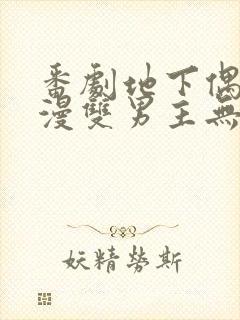 番劇地下偶
漫雙男主無
妖精勞斯